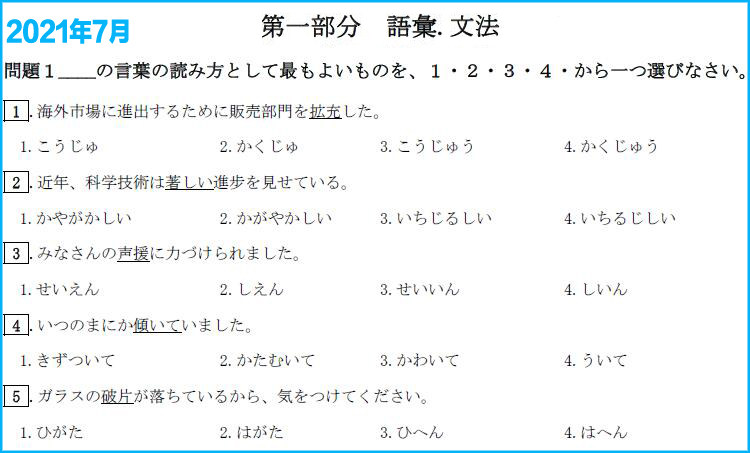 2021年7月
第一部分　語彙.文法
問題１____の言葉の読み方として最もよいものを、１・２・３・４・から一つ選びなさい。
1.海外市場に進出するために販売部門を拡充した。
1.こうじゅ 2.かくじゅ 3.こうじゅう 4.かくじゅう
2.近年、科学技術は著しい進歩を見せている。
1.かやがかしい 2.かがやかしい 3.いちじるしい 4.いちるじしい
3.みなさんの声援に力づけられました。
1.せいえん 2.しえん 3.せいいん 4.しいん
4.いつのまにか傾いていました。
1.きずついて 2.かたむいて 3.かわいて 4.ういて
5.ガラスの破片が落ちているから、気をつけてください。
1.ひがた 2.はがた 3.ひへん 4.はへん